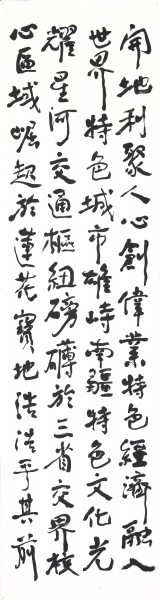 開地利聚人心創偉業特色經濟融入
世界特色城市雄峙南疆特色文化光
耀星河交通樞紐磅礴於三省交界核
心區域崛起於蓮花寶地浩浩乎其前